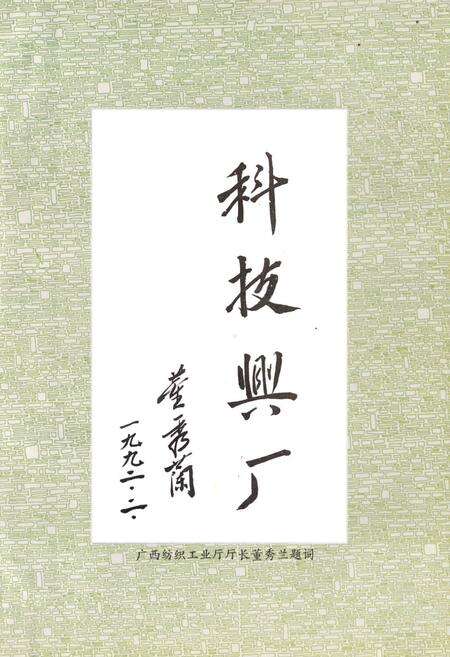 科技興厂
董秀蘭
一九九二·二·
广西纺织工业厅厅长董秀兰题词